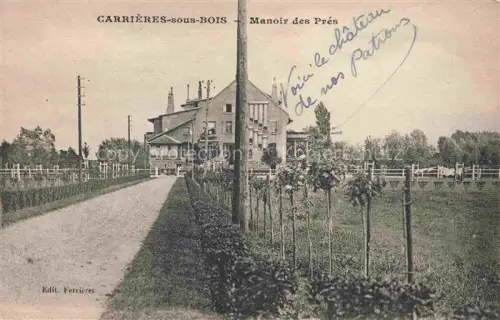 CARRIÈRES-sous-BOIS - Manoir des Prés
Voici le château
de nos Patrons.
Edit. Ferrières